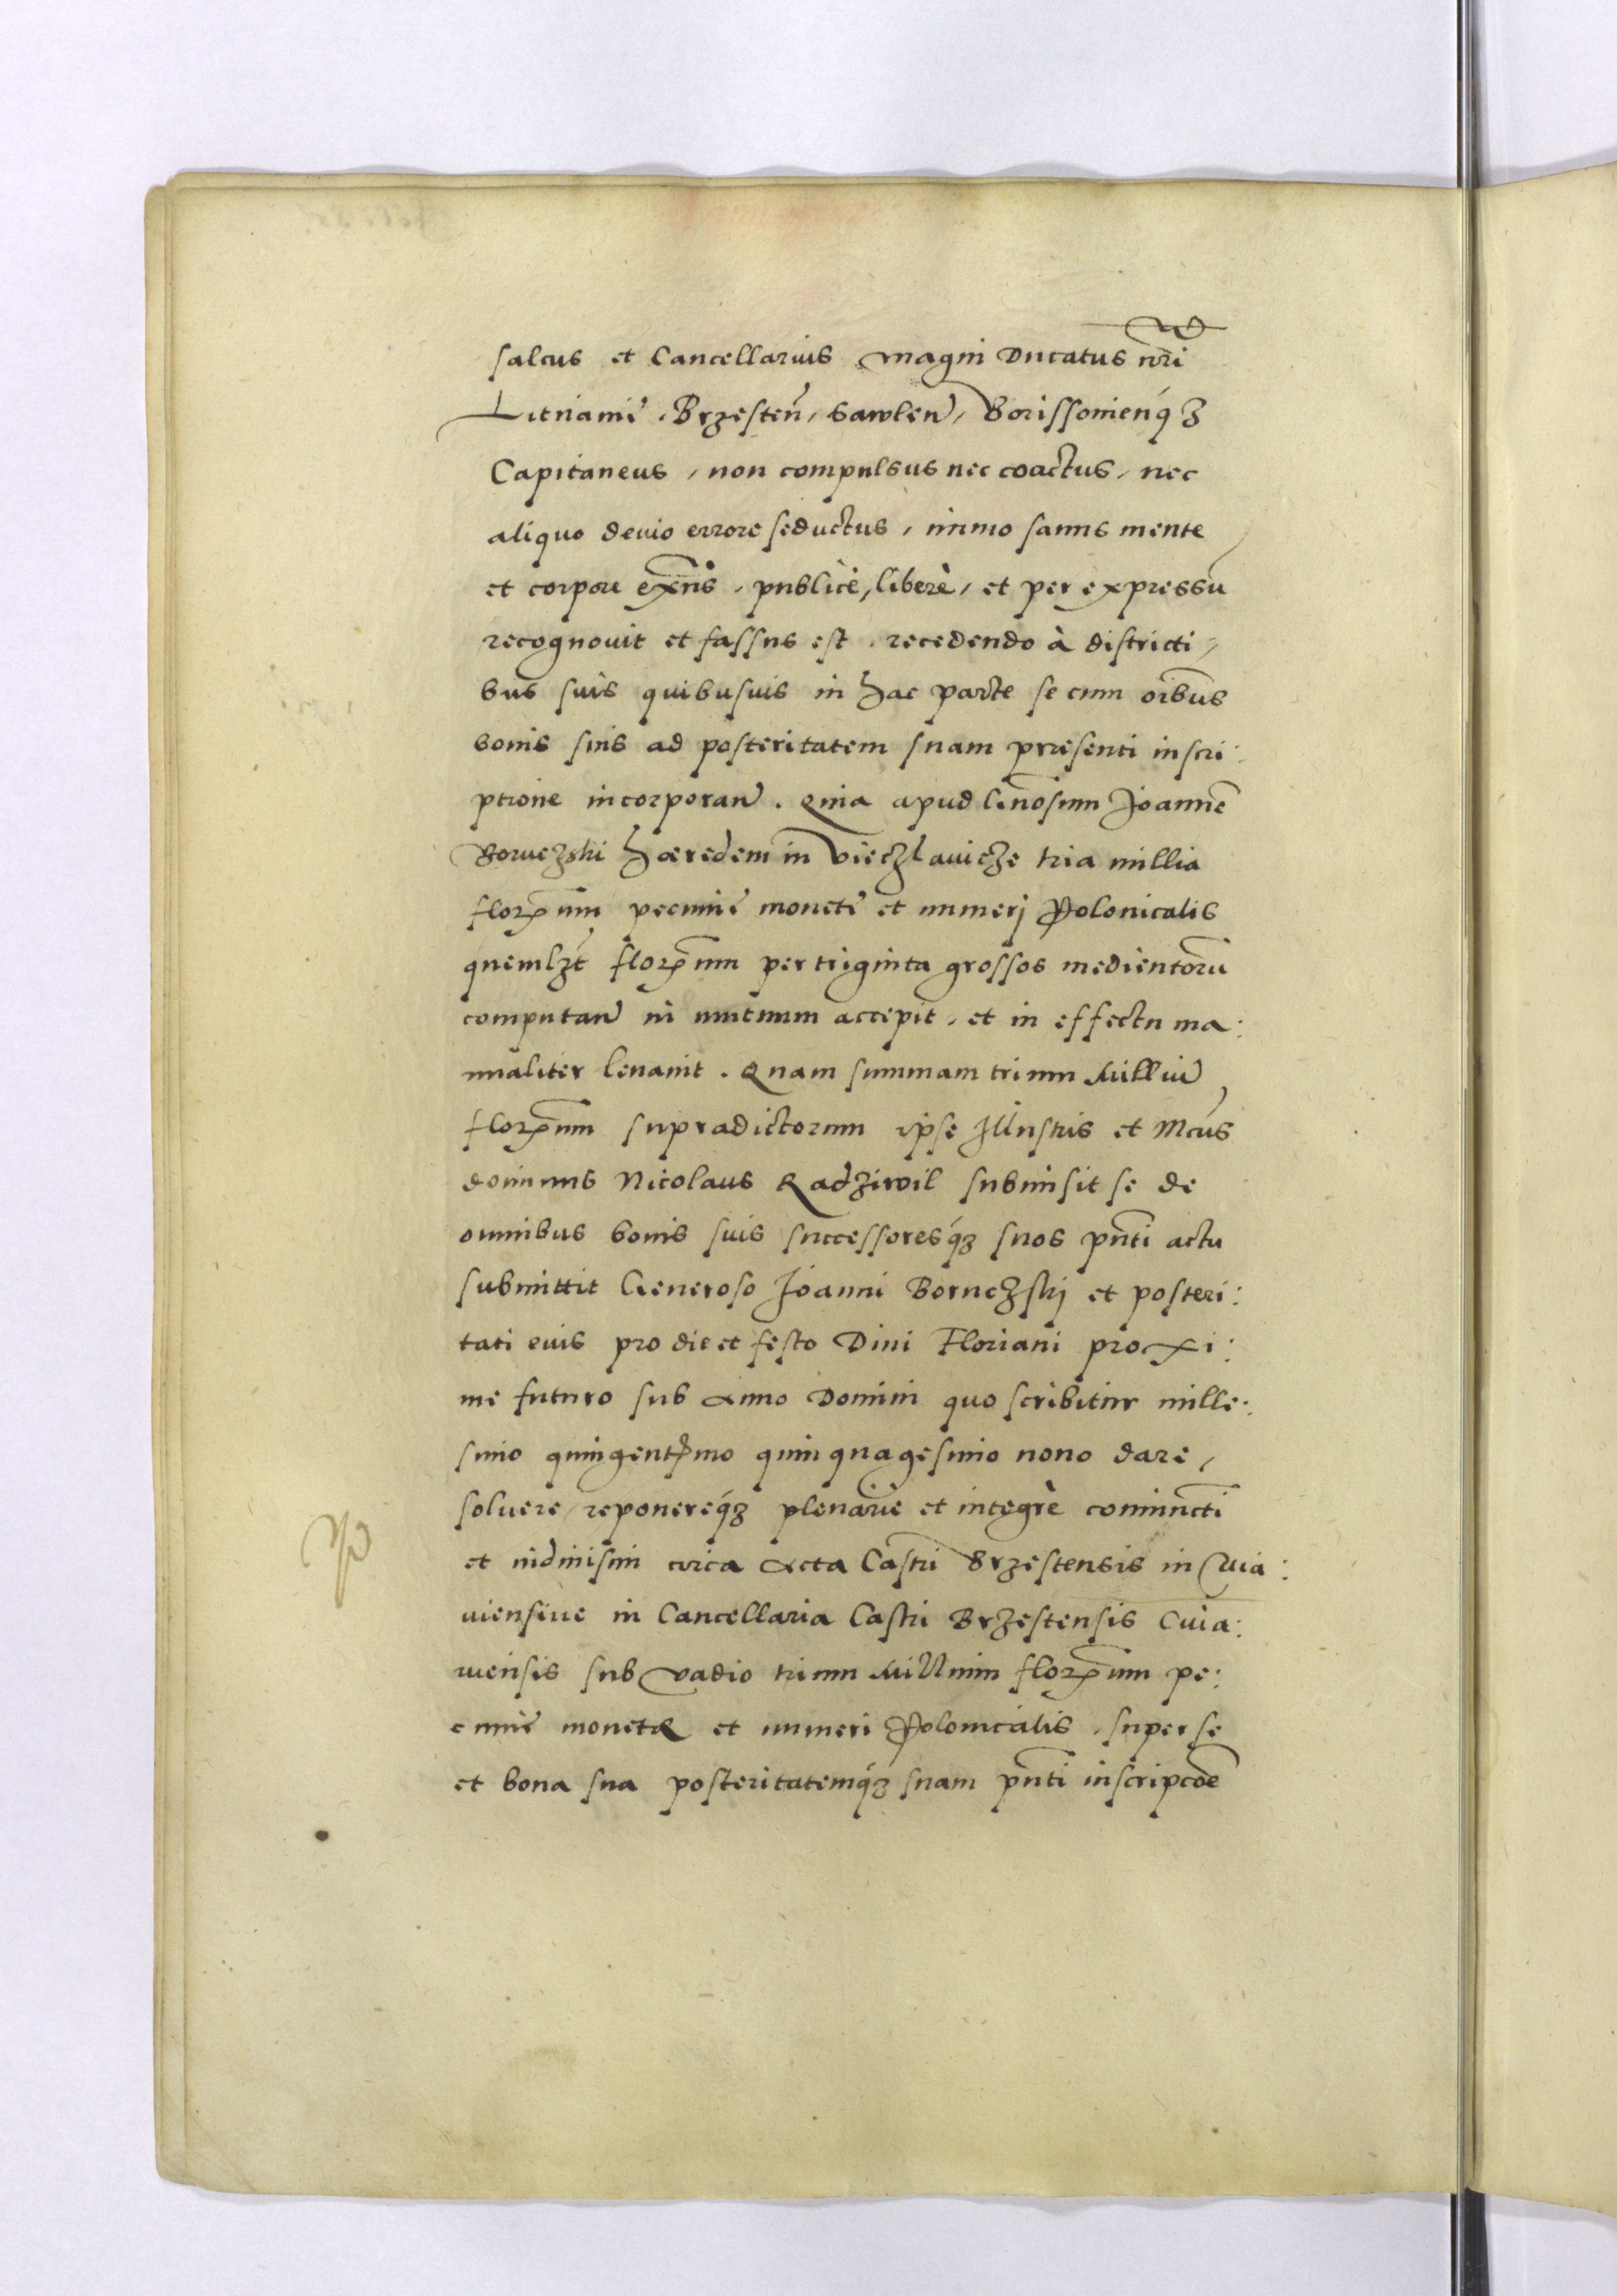 salcus et Cancellarius magni Ducatus nr̃i
Lituanię. Brzesten̄, Sawlen̄, Borissouienq́ȝ
Capitaneus, non compulsus nec coactus, nec
aliquo deuio errore seductus, immo sanus mente
et corpore exñs, publicè, liberè, et per expressũ
recognouit et fassus est. recedendo à districti,
bus suis quibusuis in hac parte se cum oĩbus
bonis suis ad posteritatem suam præsenti inscri:
ptione incorporan̄. Quia apud Gñosum Joannẽ
Boruczski hæredem in Vieczlauicze tria millia
florẽnum pecunię monetę et numerj Polonicalis
quemlȝt florẽnum per triginta grossos medientorũ
computan̄ in mutuum accepit, et in effectu ma:
nualiter leuauit. Quam summam trium Milliũ
florẽnum supradictorum ipse Illustris et Mc̃us
dominus Nicolaus Radziwil submisit se de
omnibus bonis suis successoresq́ȝ suos pñti actu
submittit Generoso Joanni Boruczskj et posteri:
tati euis pro die et festo Diui Floriani proxi:
me futuro sub Anno Domini quo scribitur mille:
simo quingentẽmo quinquagesimo nono dare,
soluere, reponereq́ȝ plenariè et integrè coniunctĩ
et indiuisim circa Acta Castri Brzestensis in Cuia:
uiensi siue in Cancellaria Castri Brzestensis Cuia:
uiensis sub vadio trium Millium florẽnum pe:
cunię monetæ et numeri Polonicalis, super se
et bona sua posteritatemq́ȝ suam pñti inscripcõe